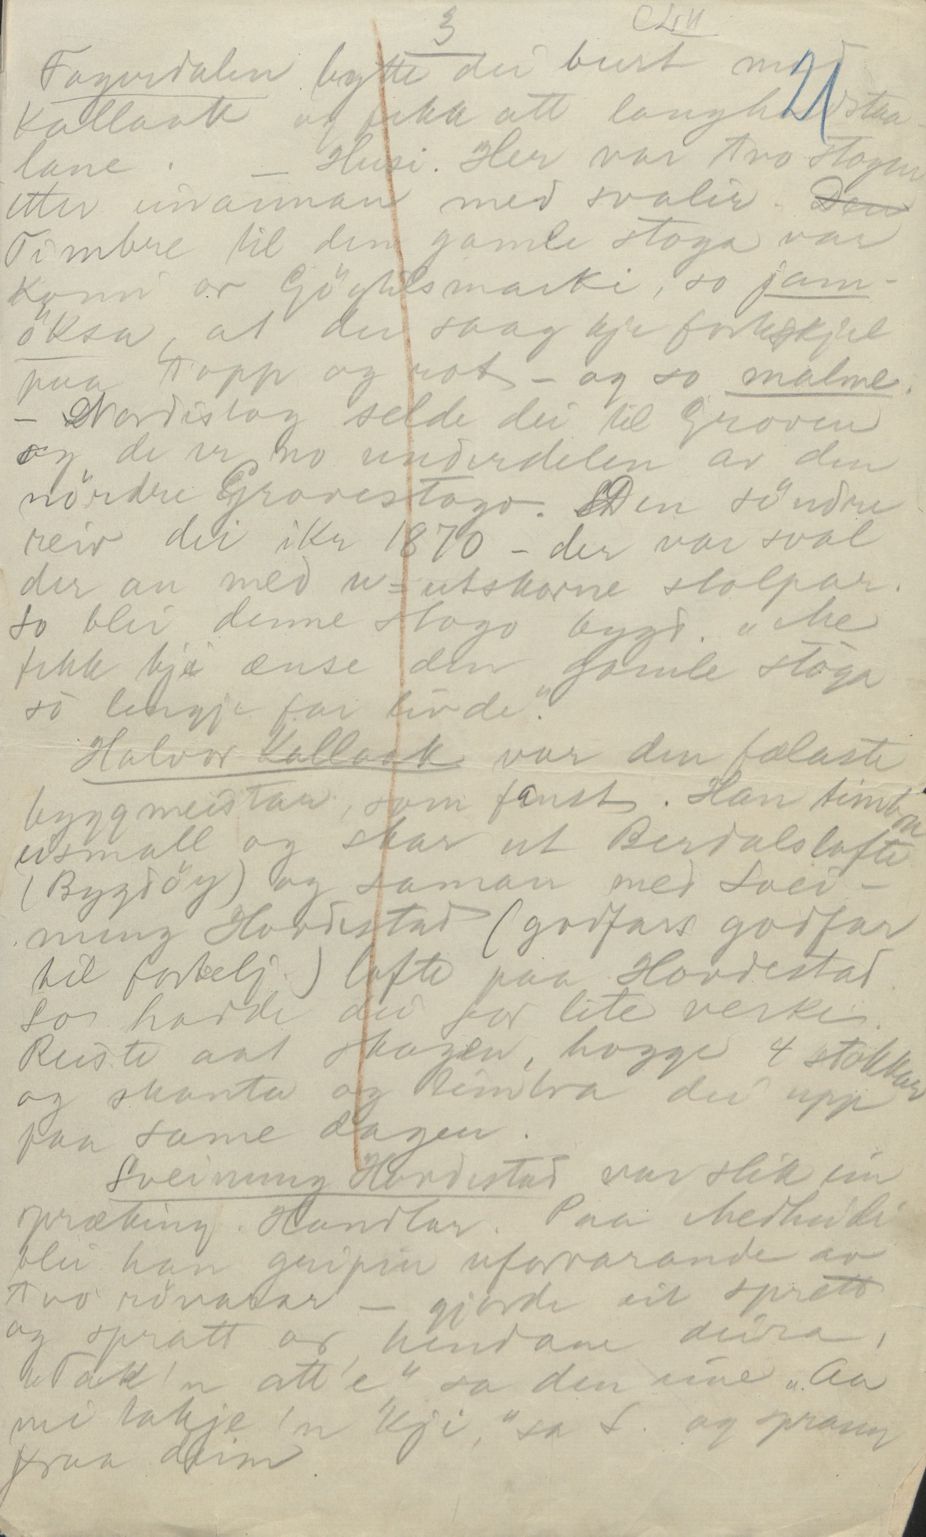 3
21
Fagerdalen bytte dei burt med
Kallaak og fekk att
lane. — Husi. Her var tvo stogur
etter einannan med svalir. Den
Timbre til den gamle stoga var
komi or Göytilsmarki, so jam-
öksa, at dei saag kje forskjel
paa topp og rot – og so malme.
– Nordistog selde dei til Groven
og de er no underdelen av den
nördre Grovestogo. Den söndre
reiv dei ikr 1870 – der var sval
der an med u= utskorne stolpar.
So blei denne stogo bygd. "Me
fekk kje ænse den gamle stoga
so lengje far livde."
Halvor Kallaak var den fælaste
byggmeistar, som fanst. Han timbra
og skar ut Berdalslofte
(Bygdöy) og saman med Svei-
nung Hovdestad (godfars godfar
til fortelj.) lofte paa Hovdestad.
So hadde dei for lite verke.
Reiste aat skogen, hogge 4 stokkar
og skanta og timbra dei upp
paa same dagen.
Sveinung Hovdestad var slik ein
spræking. Handlar. Paa Medheidi
blei han gripin uforvarande av
tvo rövarar – gjorde eit sprett
og spratt or hendane deira,
"Tak 'n att 'e" sa den eine "Aa
mi takje 'n kji," sa S. og sprang
fraa deim